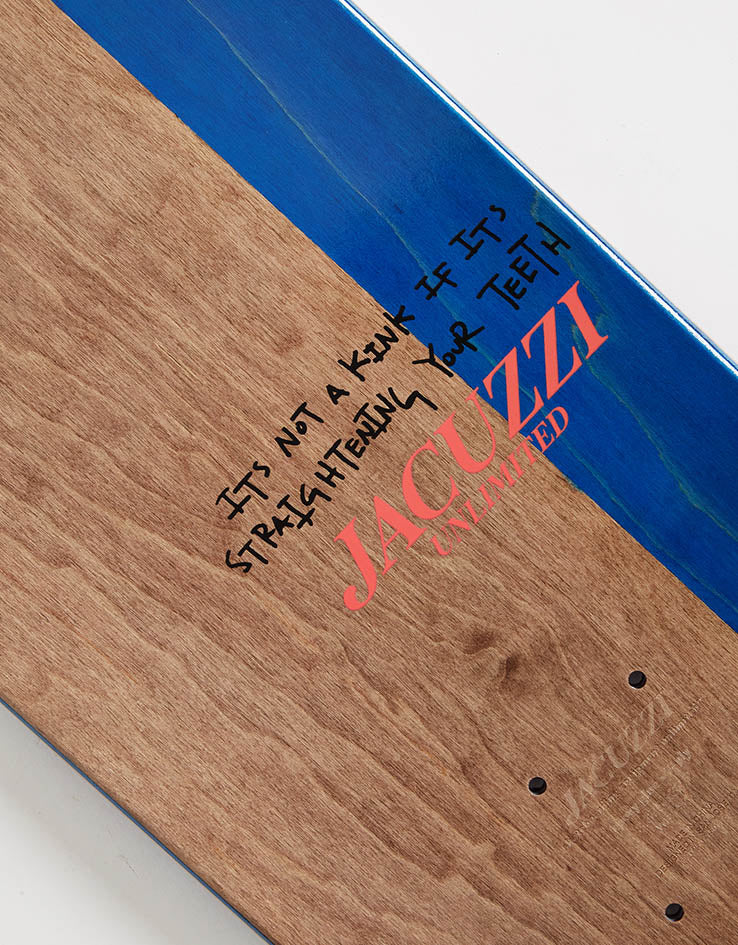 ITS NOT A KINK IF ITS
STRAIGHTENING YOUR TEETH
JACUZZI
UNLIMITED
JACUZZI